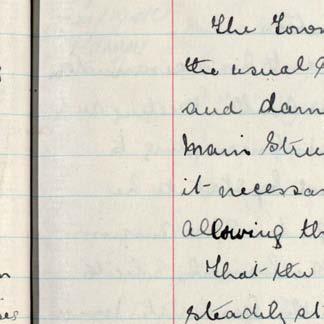 The Town
the usual
and dam
Main Stru
it necessar
allowing th
That the
steadily st